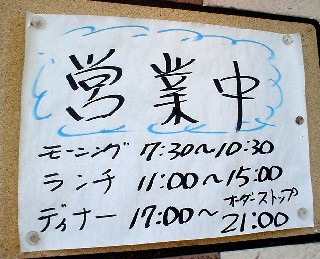 営業中
モーニング 7:30〜10:30
ランチ 11:00〜15:00
ディナー 17:00〜オーダーストップ21:00